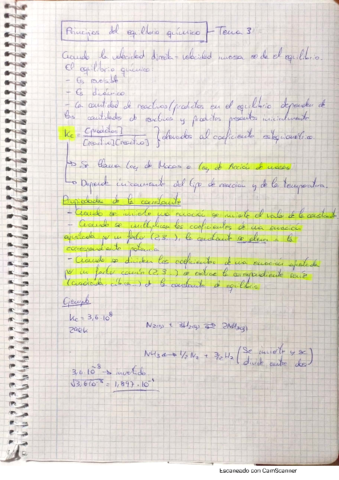 Principios del equilibrio químico - Tema 3
Cuando la velocidad directa = velocidad inversa se da el equilibrio.
El equilibrio químico
- Es
- Es dinámico
- La cantidad de reactivo/producto en el equilibrio dependen de
las cantidades de reactivos y productos presentes inicialmente
Kc = [productos] / [reactivo][reactivo] } elevados al coeficiente estequiométrico
↳ Se llama Ley de Masas o Ley de Acción de masas
↳ Depende únicamente del tipo de reacción y de la temperatura.
Propiedades de la constante
- Cuando se invierte una ecuación se invierte el valor de la constante
- Cuando se multiplican los coeficientes de una ecuación
ajustada por un factor (2,3...) la constante se eleva a la
correspondiente potencia
- Cuando se dividen los coeficientes de una ecuación ajustada
por un factor común (2,3...) se extrae la correspondiente raíz
(cuadrada, cúbica...) de la constante de equilibrio.
Ejemplo
Kc = 3,6·10⁸
298K
(Se invierte y se
divide entre dos)
invertido
Escaneado con CamScanner